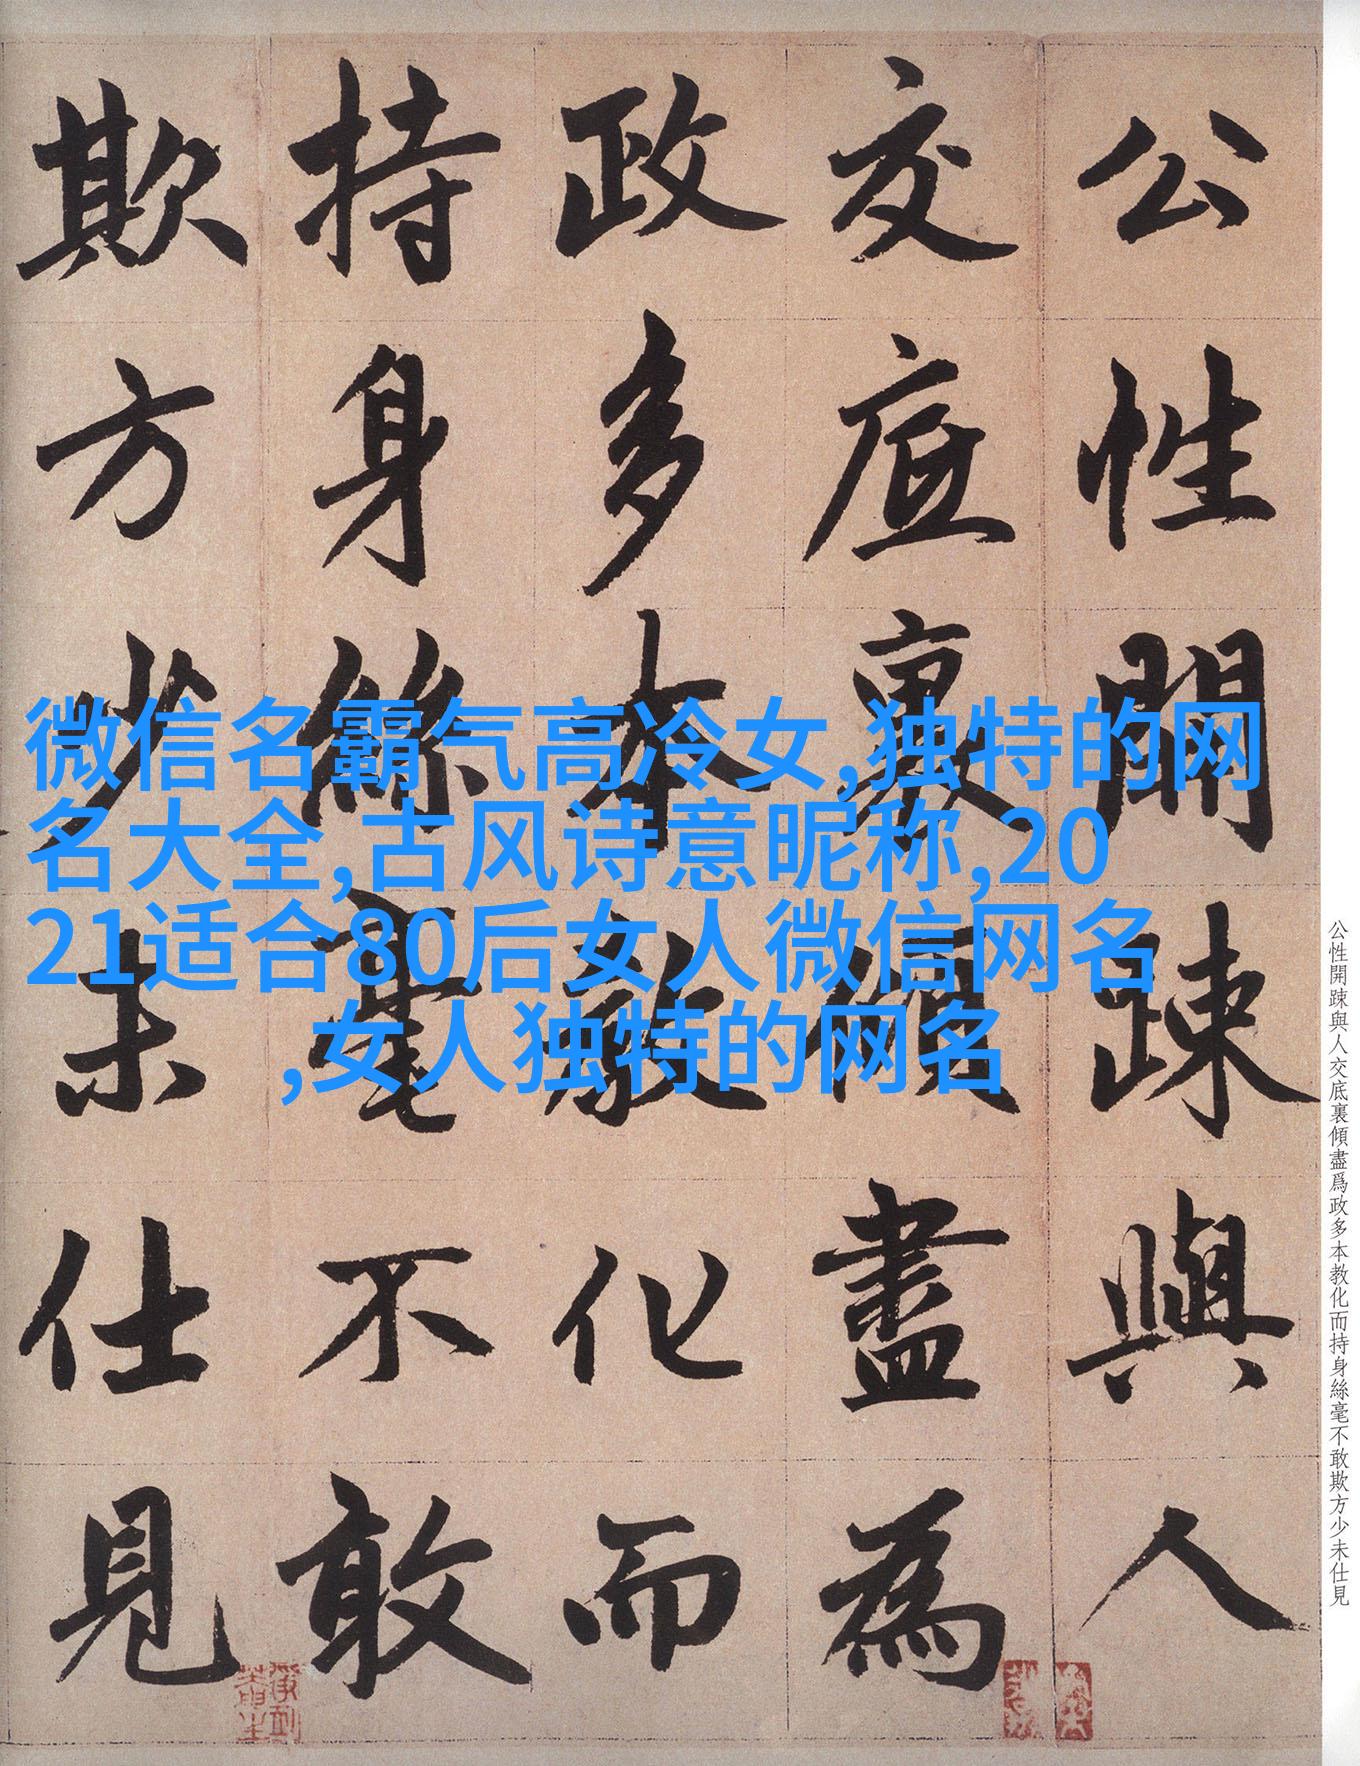 公性開踈與人
交底裏傾盡為
政多本教化而
持身絲毫不敢
欺方少未仕見
微信名霸气高冷女,独特的网
名大全,古风诗意昵称,20
21适合80后女人微信网名
,女人独特的网名
公性開踈與人交底裏傾盡爲政多本教化而持身絲毫不敢欺方少未仕見